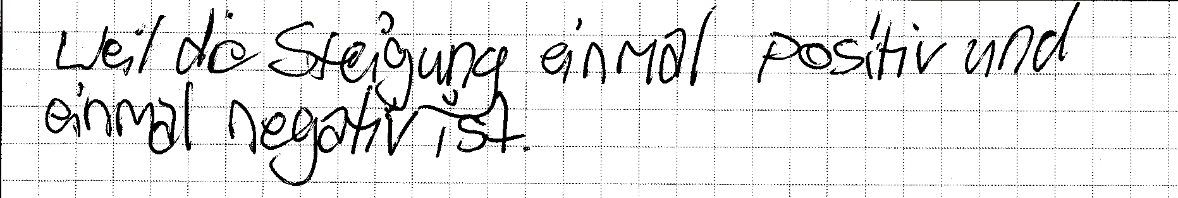 Weil die Steigung einmal positiv und
einmal negativ ist.